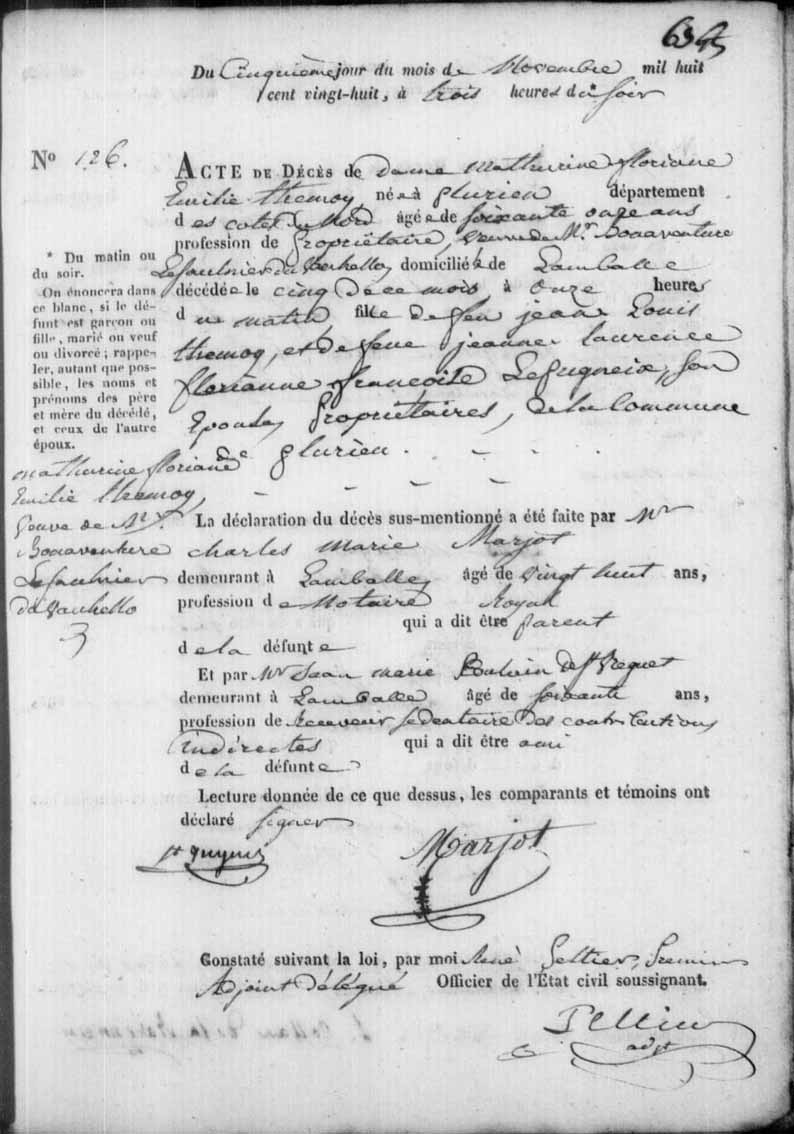 Du Cinquième jour du mois de Novembre mil huit
cent vingt-huit, à trois heures du soir
No 126.
ACTE DE DÉCÈS de dame Mathurine floriane
Emilie themoy, née à plurien département
des cotes du Nord âgée de soixante onze ans
profession de Propriétaire, veuve de Mr. Bonaventure
Lefaulnier du Vauhello, domiciliée de Lamballe
décédée le cinq de ce mois, à onze heures
du matin, fille de feu jean Louis
themoy, et de feue jeanne laurence
florianne francoise, son
Epouse, Propriétaires, de la Commune
de plurien.
* Du matin ou
du soir.
On énoncera dans
ce blanc, si le dé-
funt est garçon ou
fille, marié ou veuf
ou divorcé ; rappe-
ler, autant que pos-
sible, les noms et
prénoms des père
et mère du décédé,
et ceux de l'autre
époux.
mathurine floriane
Emilie themoy,
veuve de Mr.
Bonaventure
Lefaulnier
du Vauhello
La déclaration du décès sus-mentionné a été faite par Mr
charles marie Marjot
demeurant à Lamballe, âgé de vingt huit ans,
profession de Notaire Royal
qui a dit être parent
de la défunte
Et par Mr Jean marie
demeurant à Lamballe âgé de soixante ans,
profession de Receveur sedentaire des contributions
indirectes qui a dit être ami
de la défunte
Lecture donnée de ce que dessus, les comparants et témoins ont
déclaré signer
Marjot
Constaté suivant la loi, par moi René Peltier, Premier
Adjoint Délégué Officier de l'État civil soussignant.
Peltier
adjt